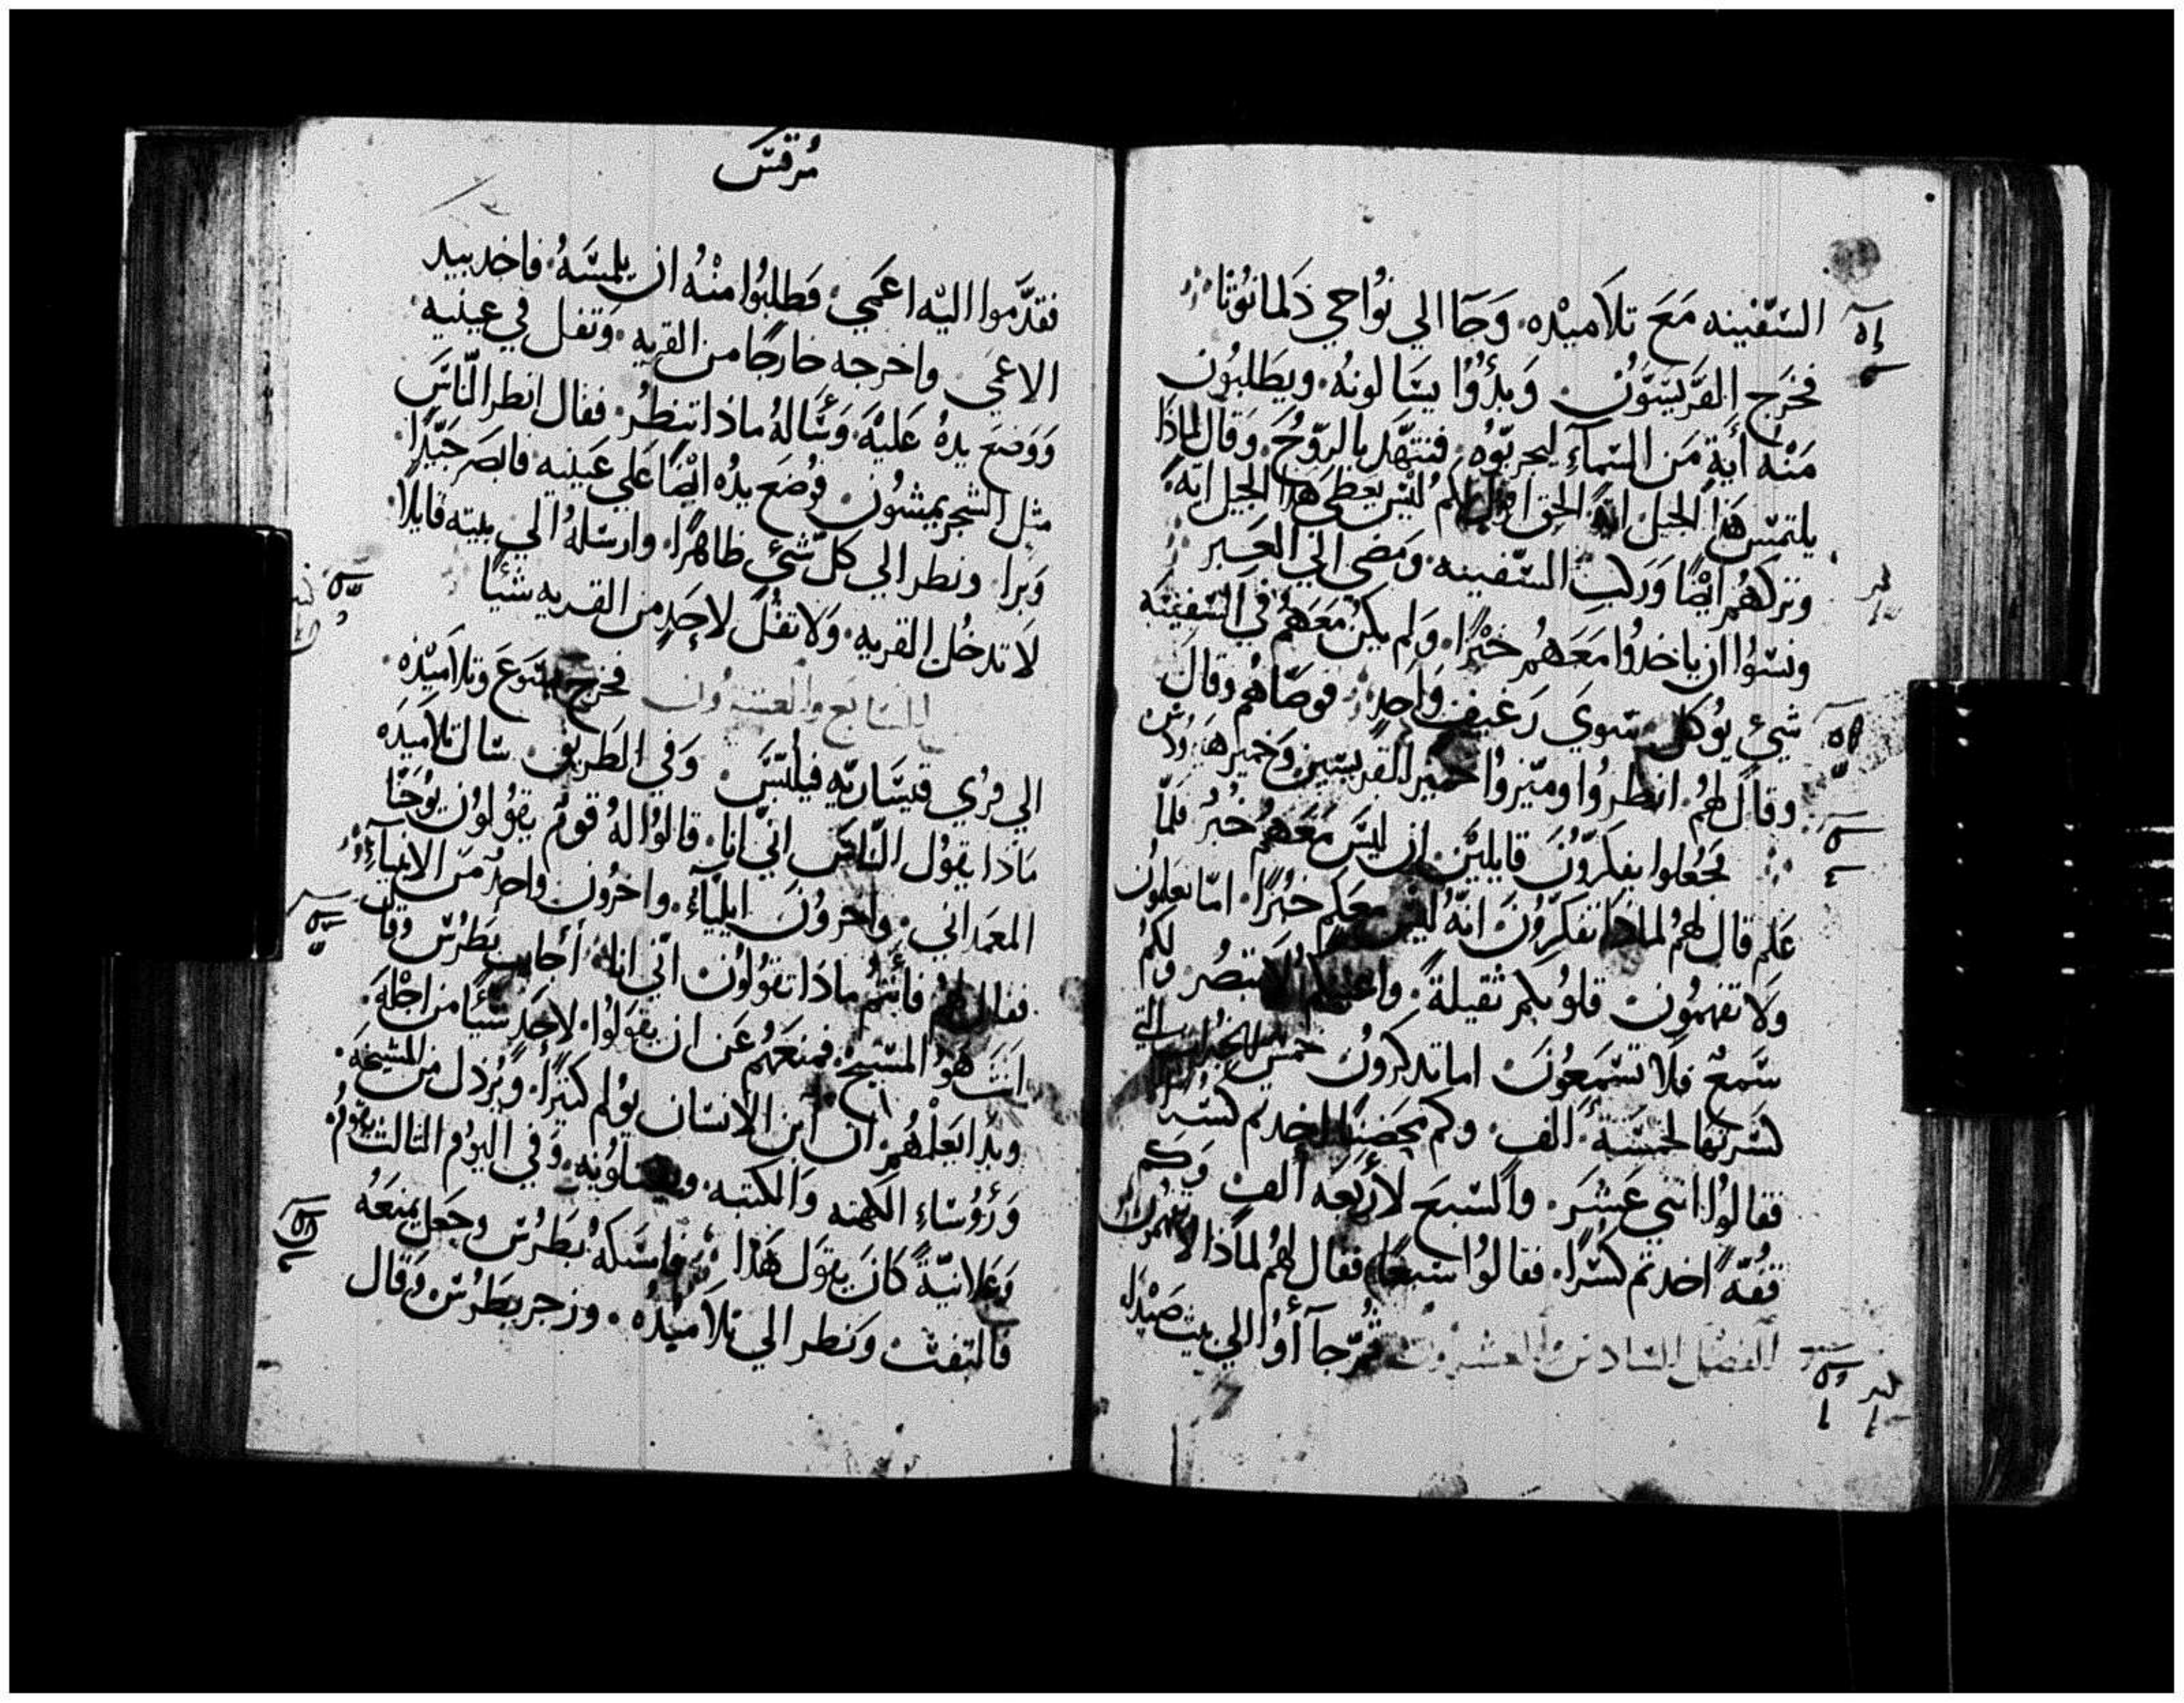 السّفينه مَعَ تلاَميْده. وَجَا الي نُواحي دَلمانوُثا
فخرَج القرّيسيّوُن وَبدُؤُا يسَالونهُ. ويَطلبوُن
مَنْه أية مَن السَّماَءِ ليجربّوُه. فتنهَّد بالرّوُحَ. وَقال لماذَا
يلتمسْ هَذا الجيل ايَة الحق اقول لكم ليْسَ يعطي هذا الجيل ايَة
وتركهُم ايْضًا وَركبْ السّفينه. وَمَضي الي العَبر
ونسَوُا ان ياخدُوا مَعَهُم خبْزًا. وَلم يكنْ مَعَهُم في السّفينَه
شيْ يوُكل سوي رَغيف وَاحِد. فوصّاهُم وقال
وقال لهُم. انظرُوا وميّزوُا خمير القريسيّين وَخمير هيرودُس
فجَعُلوا يفكرّوُنَ قايليَّن. ان ليسَ مَعَهُم خبز فلمَّا
عَلم قال لهُم لماذا تفكرّوُنَ انهُ ليسَ معَكم خبُزًا. امّا تعلمُون
وَلا تفهَموُن قلوُبكم ثقيلة. واعينكم لا تبصُر وَلكمُ
سَمعٌ فلاَ تسْمَعوُنَ اما تدكروُن خمسْ الخبزات التي
كسَرتها لخمسَة ألف. وكم اخدتم كسَرًا
فقالوُا اثني عَشَرَ. والسّبعَ لأربَعَه ألف وَكم
قفّة اخدتم كسَرًا. فقالوُا سَبعًا فقال لهُم لماذا لا تفهمون
الفصْل السّادسْ والعشروُن ثمّ جآؤُا الي بيت صَيْدَا
مُرقسَ
فقدّموا اليْه اعَمي. فطلبوُا منْهُ ان يلمسَهُ. فاخد بيد
الاعمَي واخرجه خارجًا من القريه. وَتفل في عينيه
وَوضعَ يدهُ عَليْه. وَسَأله ماذا تنظُر. فقال انظر النّاسَ
مثل الشجر يمشوُن. فوُضعَ يدُه ايْضًا عَلي عَينيه فابصَر جَيّدًا.
وَبرا ونظر الي كلّ شيْ ظاهرًا. وارسَلهُ الي بيته قايلاً.
لاَ تدخُل القريه. وَلا تقُل لاَحَدٍ من القريه شيْئًا
السَّابع والعشروُن فخرج يسَوعَ وتلامَيْده.
الي قرُي قيسَّاريّه فيلبّسَ. وَفي الطريق سَال تلاَميَدَه
مَاذا يقوُل النّاسَ انّي انا. قالوُا لهُ قوم يقوُلون يوُحَنّا
المعمَداني. واخروُنَ ايليّاء. واخرُون واحد مَن الانبيَآء
فقال لهُم فأنتُم ماذَا تقوُلوُن انّي انا. أجابَ بَطرُسْ وقال
انتَ هوُ المسَيح. فمنعَهُم عَن ان يقوَلوُا. لاحَدٍ شيئًا من اجْلهَ.
وبدا يَعلمْهُم انّ ابن الانسَان يوُلم كثيرًا. وَيُرذل من المشيخة.
وَرؤُسَاءِ الكهنه وَالكتبه. ويقتلوُنه. وَفي اليوُم التالت يقوُم.
وَعَلانيّة كانَ يقوَل هَذا. فامسَكهُ بُطرُسْ وجَعل يمنعَهُ
فالتفتْ وَنظر الي تلاَميْدُه. وزجر بطرُسْ وَقال